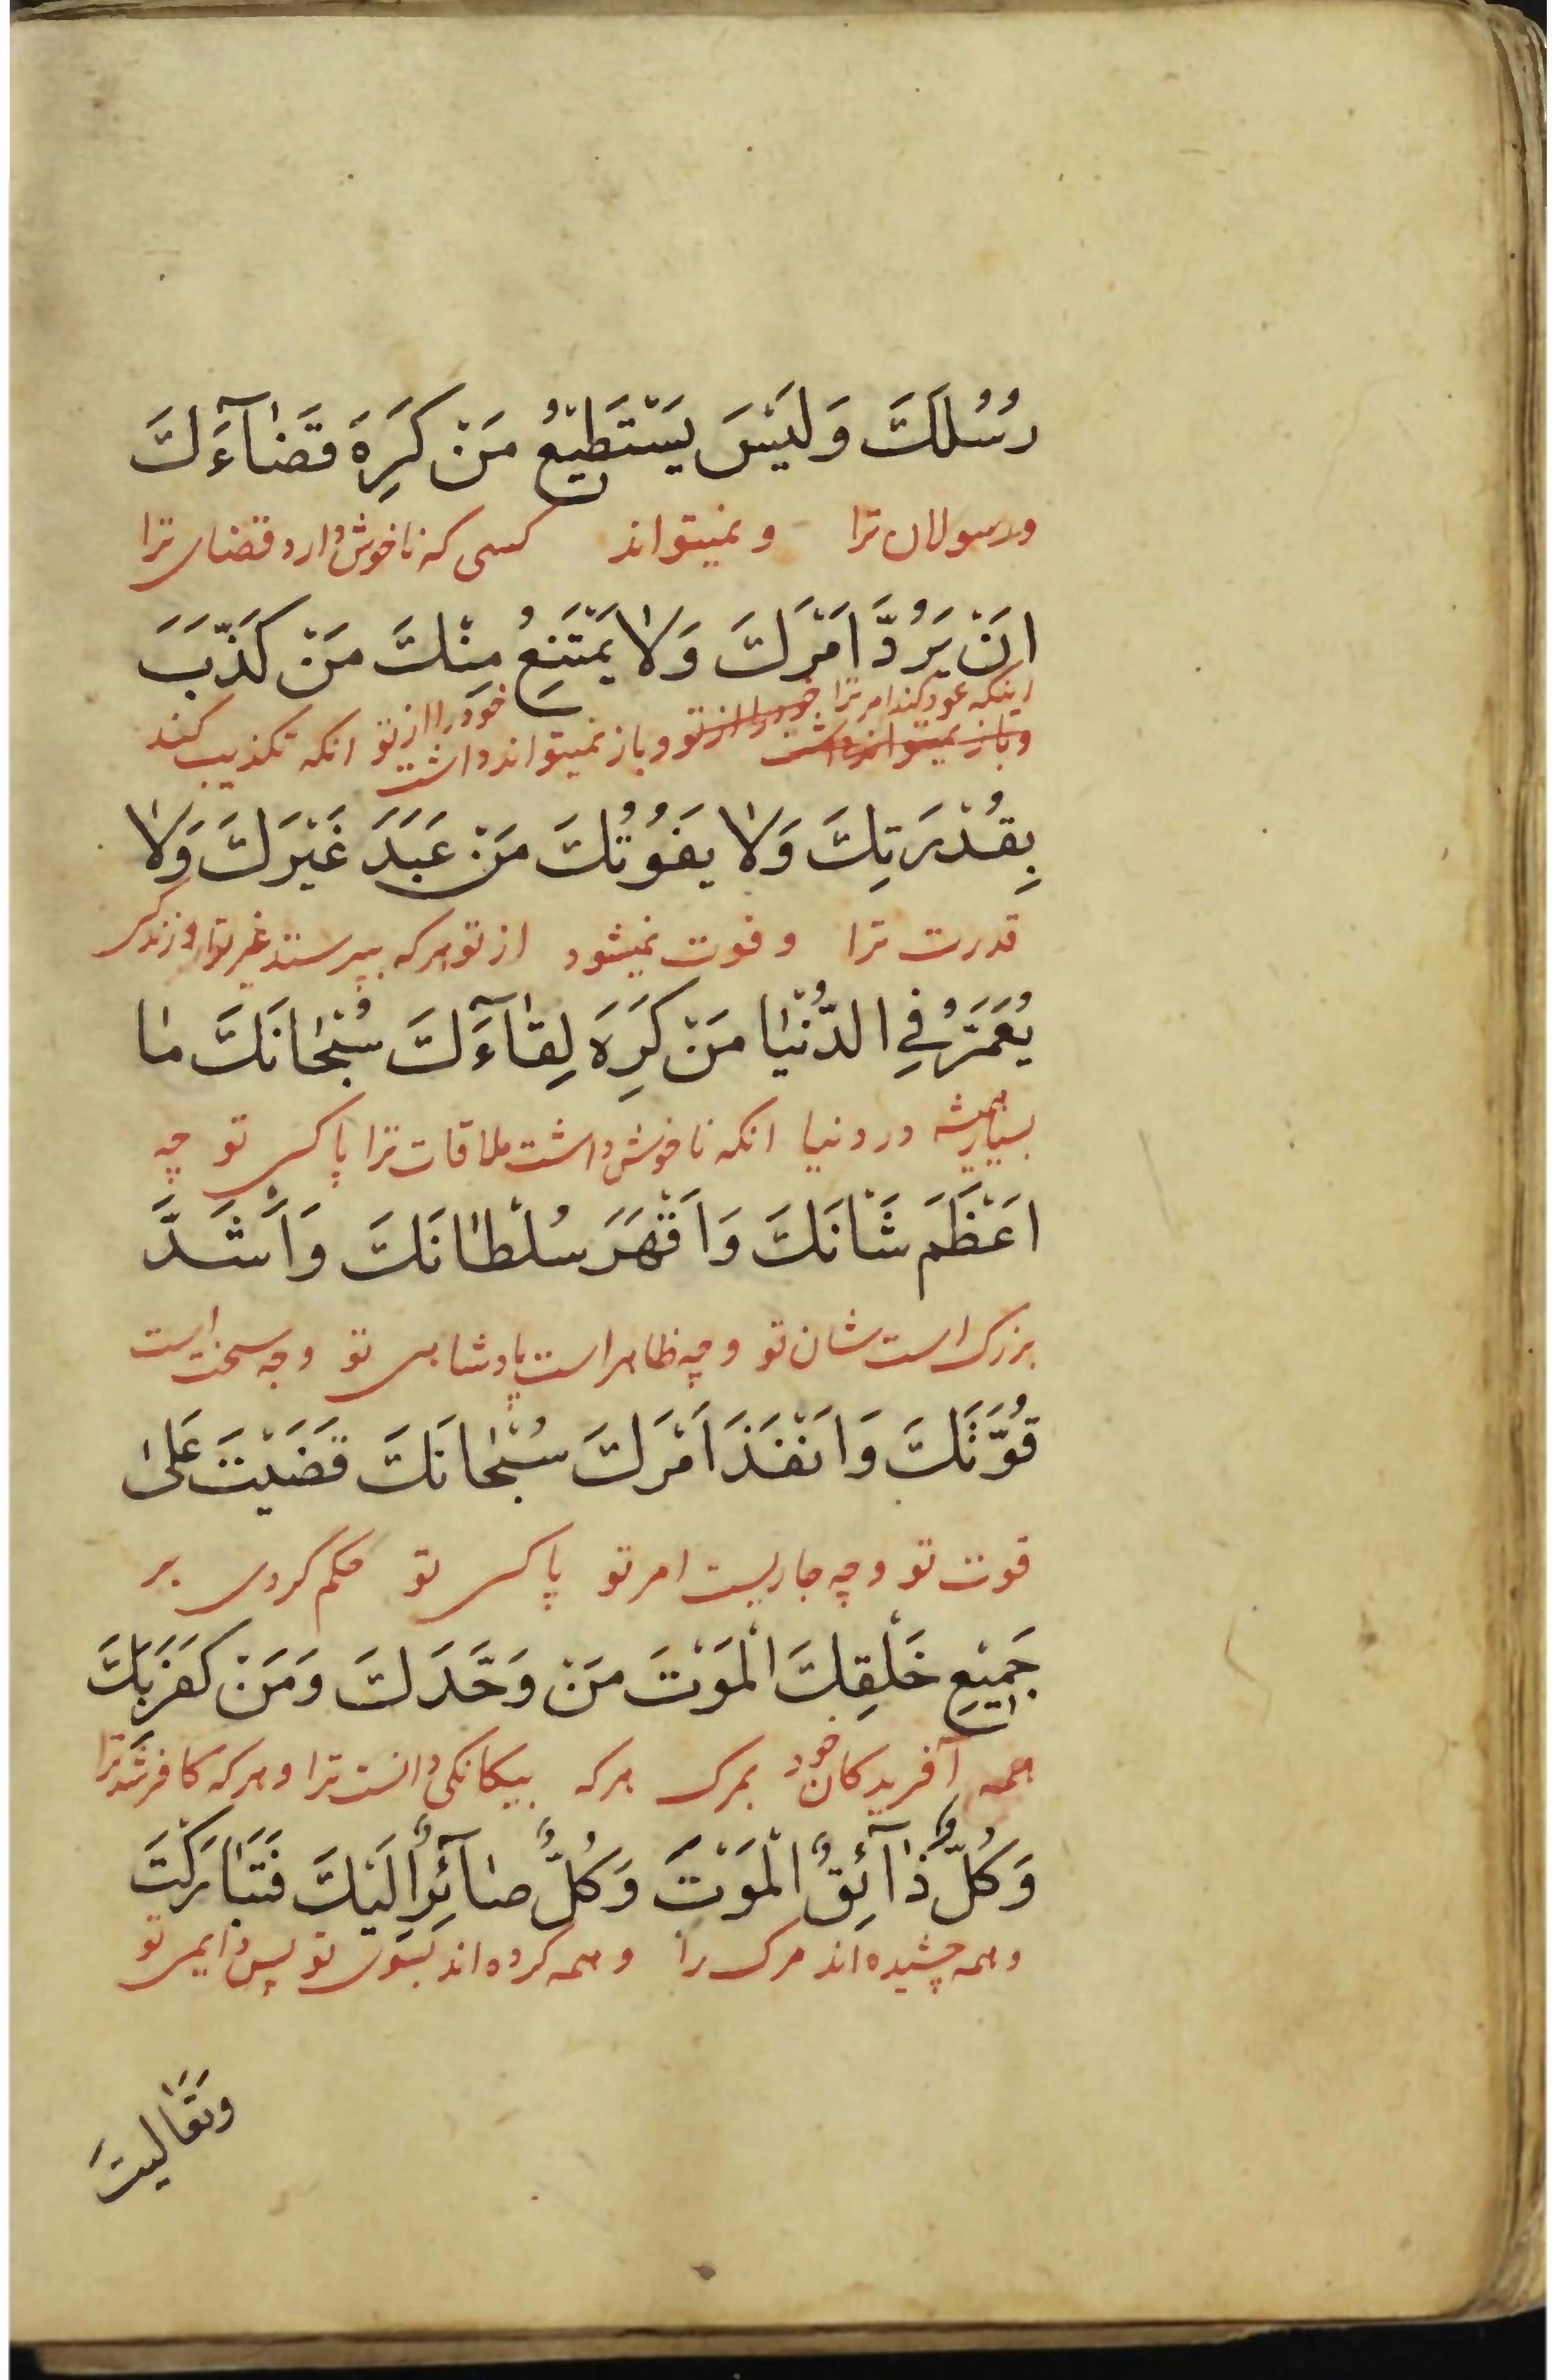 رُسُلَكَ وَلَيْسَ يَسْتَطِيْعُ مَنْ كَرِهَ قَضٰآءَكَ
ورسولان ترا و نمیتواند کسی که ناخوش دارد قضای ترا
انَْ يَرُدَّ اَمْرَكَ وَلٰا يَمْتَنِعُ مِنْكَ مَنْ كَذَّبَ
اینکه عود کند امر ترا خود را از تو و باز نمیتواند داشت خود را از تو انکه تکذیب کند
و باز نمیتواند داشت
بِقُدْرَتِكَ وَلٰا يَفُوتُكَ مَنْ عَبَدَ غَيْرَكَ وَلٰا
قدرت ترا و فوت نمیشود از تو هرکه بپرستد غیر ترا و زندگی
يُعَمَّرُ فِي الدُّنْيٰا مَنْ كَرِهَ لِقٰآءَكَ سُبْحٰانَكَ مٰا
بسیار همیشه در دنیا انکه ناخوش داشت ملاقات ترا پاکی تو چه
اَعْظَمَ شَأْنَكَ وَاَقْهَرَ سُلْطٰانَكَ وَاَشَدَّ
بزرک است شان تو و چه ظاهر است پادشاهی تو و چه سخت است
قُوَّتَكَ وَاَنْفَذَ اَمْرَكَ سُبْحٰانَكَ قَضَيْتَ عَلىٰ
قوت تو و چه جاریست امر تو پاکی تو حکم کردی بر
جَمِيْعِ خَلْقِكَ الْمَوْتَ مَنْ وَحَّدَكَ وَمَنْ كَفَرَ بِكَ
همه آفریدکان خود بمرک هرکه بیکانکی دانست ترا و هرکه کافر شد ترا
وَكُلٌّ ذٰآئِقُ الْمَوْتَ وَكُلٌّ صٰآئِرٌ اِلَيْكَ فَتَبٰارَكْتَ
و همه چشیده‌اند مرک را و همه کرده‌اند بسوی تو پس دایمی تو
وتَعٰاليتَ